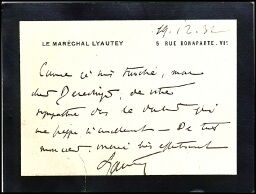 19.12.32
LE MARÉCHAL LYAUTEY
5 RUE BONAPARTE. VIe
Comme je suis touché, mon
cher de
sympathie dans le deuil qui
me frappe si cruellement — De tout
mon cœur, merci très affectueusement
Lyautey